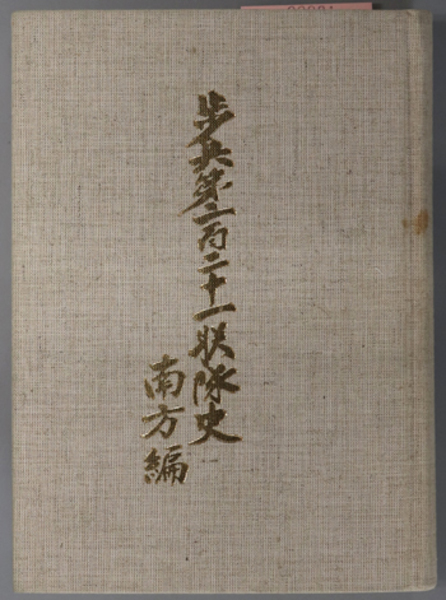 歩兵第二百二十一联隊史
南方編